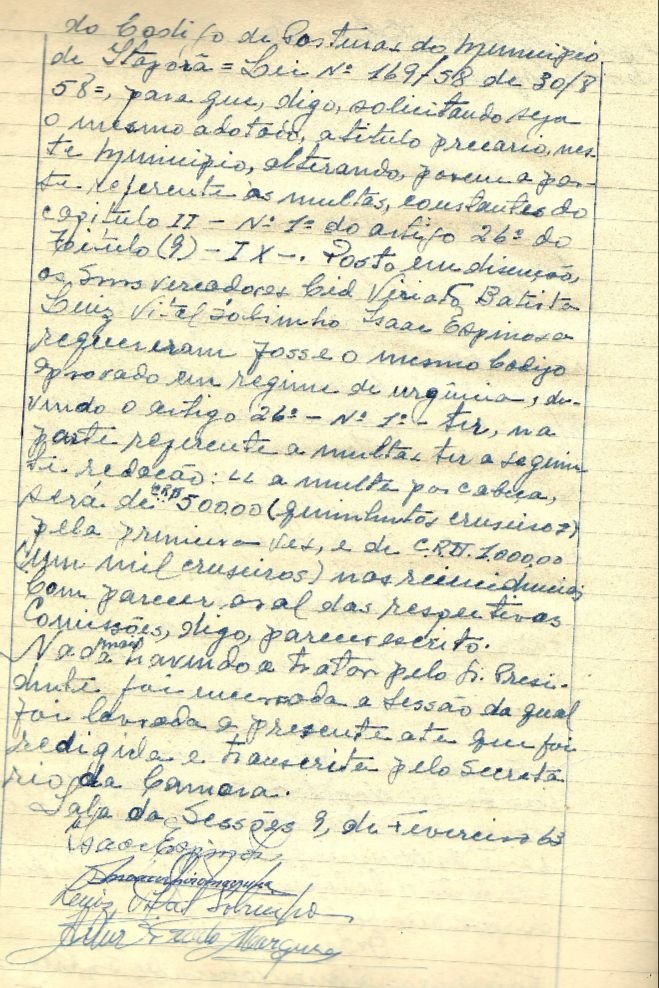 do Codigo de Posturas do Municipio
de Itaporã = Lei Nº 169/58 de 30/8
58=, para que, digo, solicitando seja
o mesmo adotado, a titulo precario, nes-
te Municipio, alterando, porem a par-
te referente as multas, constantes do
capitulo II - Nº 1º do artigo 26º do
titulo (9) - IX -. Posto em discussão,
os Snrs vereadores Cid Viriato Batista
Luiz Vital Sobrinho Isaac Espinosa
requereram fosse o mesmo Codigo
aprovado em regime de urgência, de-
vendo o artigo 26º - Nº 1º - ter, na
parte referente a multas ter a seguin
te redação: " a multa por cabeça,
será de CR$ 500,00 (quinhentos cruseiros)
pela primeira ves, e de CR$. 1.000,00
(um mil cruseiros) nas reincidencias
Com parecer oral das respectivas
Comissões, digo, parecer escrito.
Nada mais havendo a tratar pelo Sr. Presi-
dente foi encerrada a Sessão da qual
foi lavrada a presente ata que foi
redigida e transcrita pelo Secreta
rio da Camara.
Sala da Sessões 9, de Fevereiro 63
Isaac Espinosa
Luiz Vital Sobrinho
Artur Marques